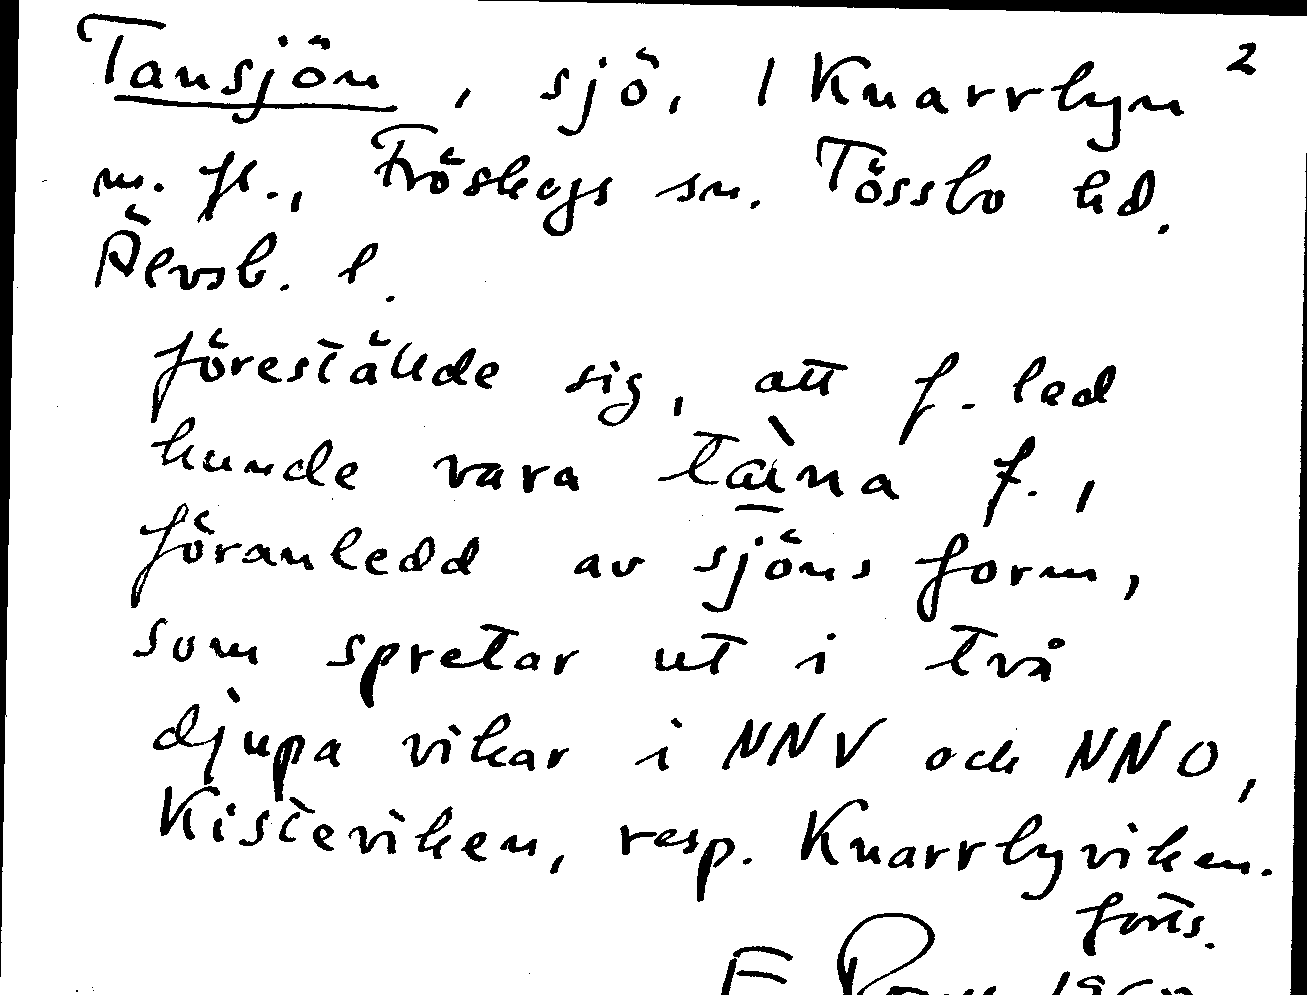 2
Tansjön, sjö, / Knarrbyn
m. fl., Fröskogs sn. Tössbo hd.
Älvsb. l.
föreställde sig, att f. led
kunde vara tàina f.,
föranledd av sjöns form,
som spretar ut i två
djupa vikar i NNV och NNO,
Kisteviken, resp. Knarrbyviken.
forts.